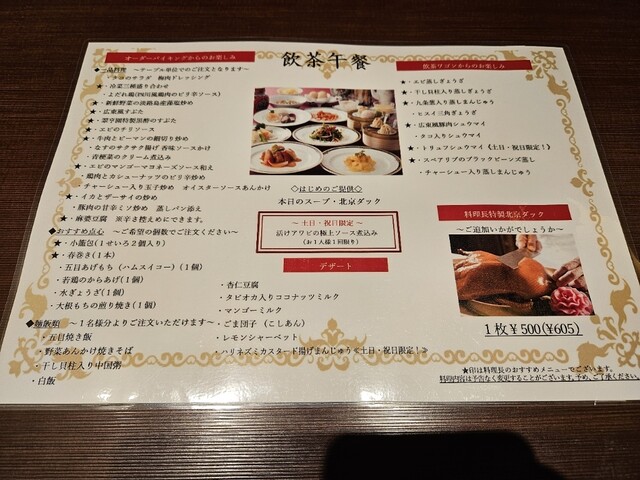 飲茶午餐
オーダーバイキングからのお楽しみ
◆一品料理 ～テーブル単位でのご注文となります～
・タコのサラダ 梅肉ドレッシング
★・冷菜三種盛り合わせ
・よだれ鶏(四川風鶏肉のピリ辛ソース)
★・新鮮野菜の淡路島産藻塩炒め
★・広東風すぶた
★・翠亨國特製黒酢のすぶた
★・エビのチリソース
★・牛肉とピーマンの細切り炒め
・なすのサクサク揚げ 香味ソースかけ
・青梗菜のクリーム煮込み
★・エビのマンゴーマヨネーズソース和え
・鶏肉とカシューナッツのピリ辛炒め
・チャーシュー入り玉子炒め オイスターソースあんかけ
★・イカとザーサイの炒め
・豚肉の甘辛ミソ炒め 蒸しパン添え
★・麻婆豆腐 ※辛さ控えめにできます。
◆おすすめ点心 ～ご希望の個数でご注文ください～
★・小籠包(1せいろ2個入り)
★・春巻き(1本)
・五目あげもち(ハムスイコー)(1個)
・若鶏のからあげ(1個)
・水ぎょうざ(1個)
・大根もちの煎り焼き(1個)
◆麺飯類 ～1名様分よりご注文いただけます～
・五目焼き飯
・野菜あんかけ焼きそば
・干し貝柱入り中国粥
・白飯
◇はじめのご提供◇
本日のスープ・北京ダック
～土日・祝日限定～
活けアワビの極上ソース煮込み
(お1人様1回限り)
デザート
・杏仁豆腐
・タピオカ入りココナッツミルク
・マンゴーミルク
・ごま団子(こしあん)
・レモンシャーベット
・ハリネズミカスタード揚げまんじゅう≪土日・祝日限定!≫
飲茶ワゴンからのお楽しみ
★・エビ蒸しぎょうざ
★・干し貝柱入り蒸しぎょうざ
★・九条葱入り蒸しまんじゅう
・ヒスイ三角ぎょうざ
★・広東風豚肉シュウマイ
・タコ入りシュウマイ
★・トリュフシュウマイ《土日・祝日限定!》
★・スペアリブのブラックビーンズ蒸し
・チャーシュー入り蒸しまんじゅう
料理長特製北京ダック
～ご追加いかがでしょうか～
1枚￥500(￥605)
★印は料理長のおすすめメニューでございます。
料理内容は予告なく変更することがございます。予め、ご了承ください。